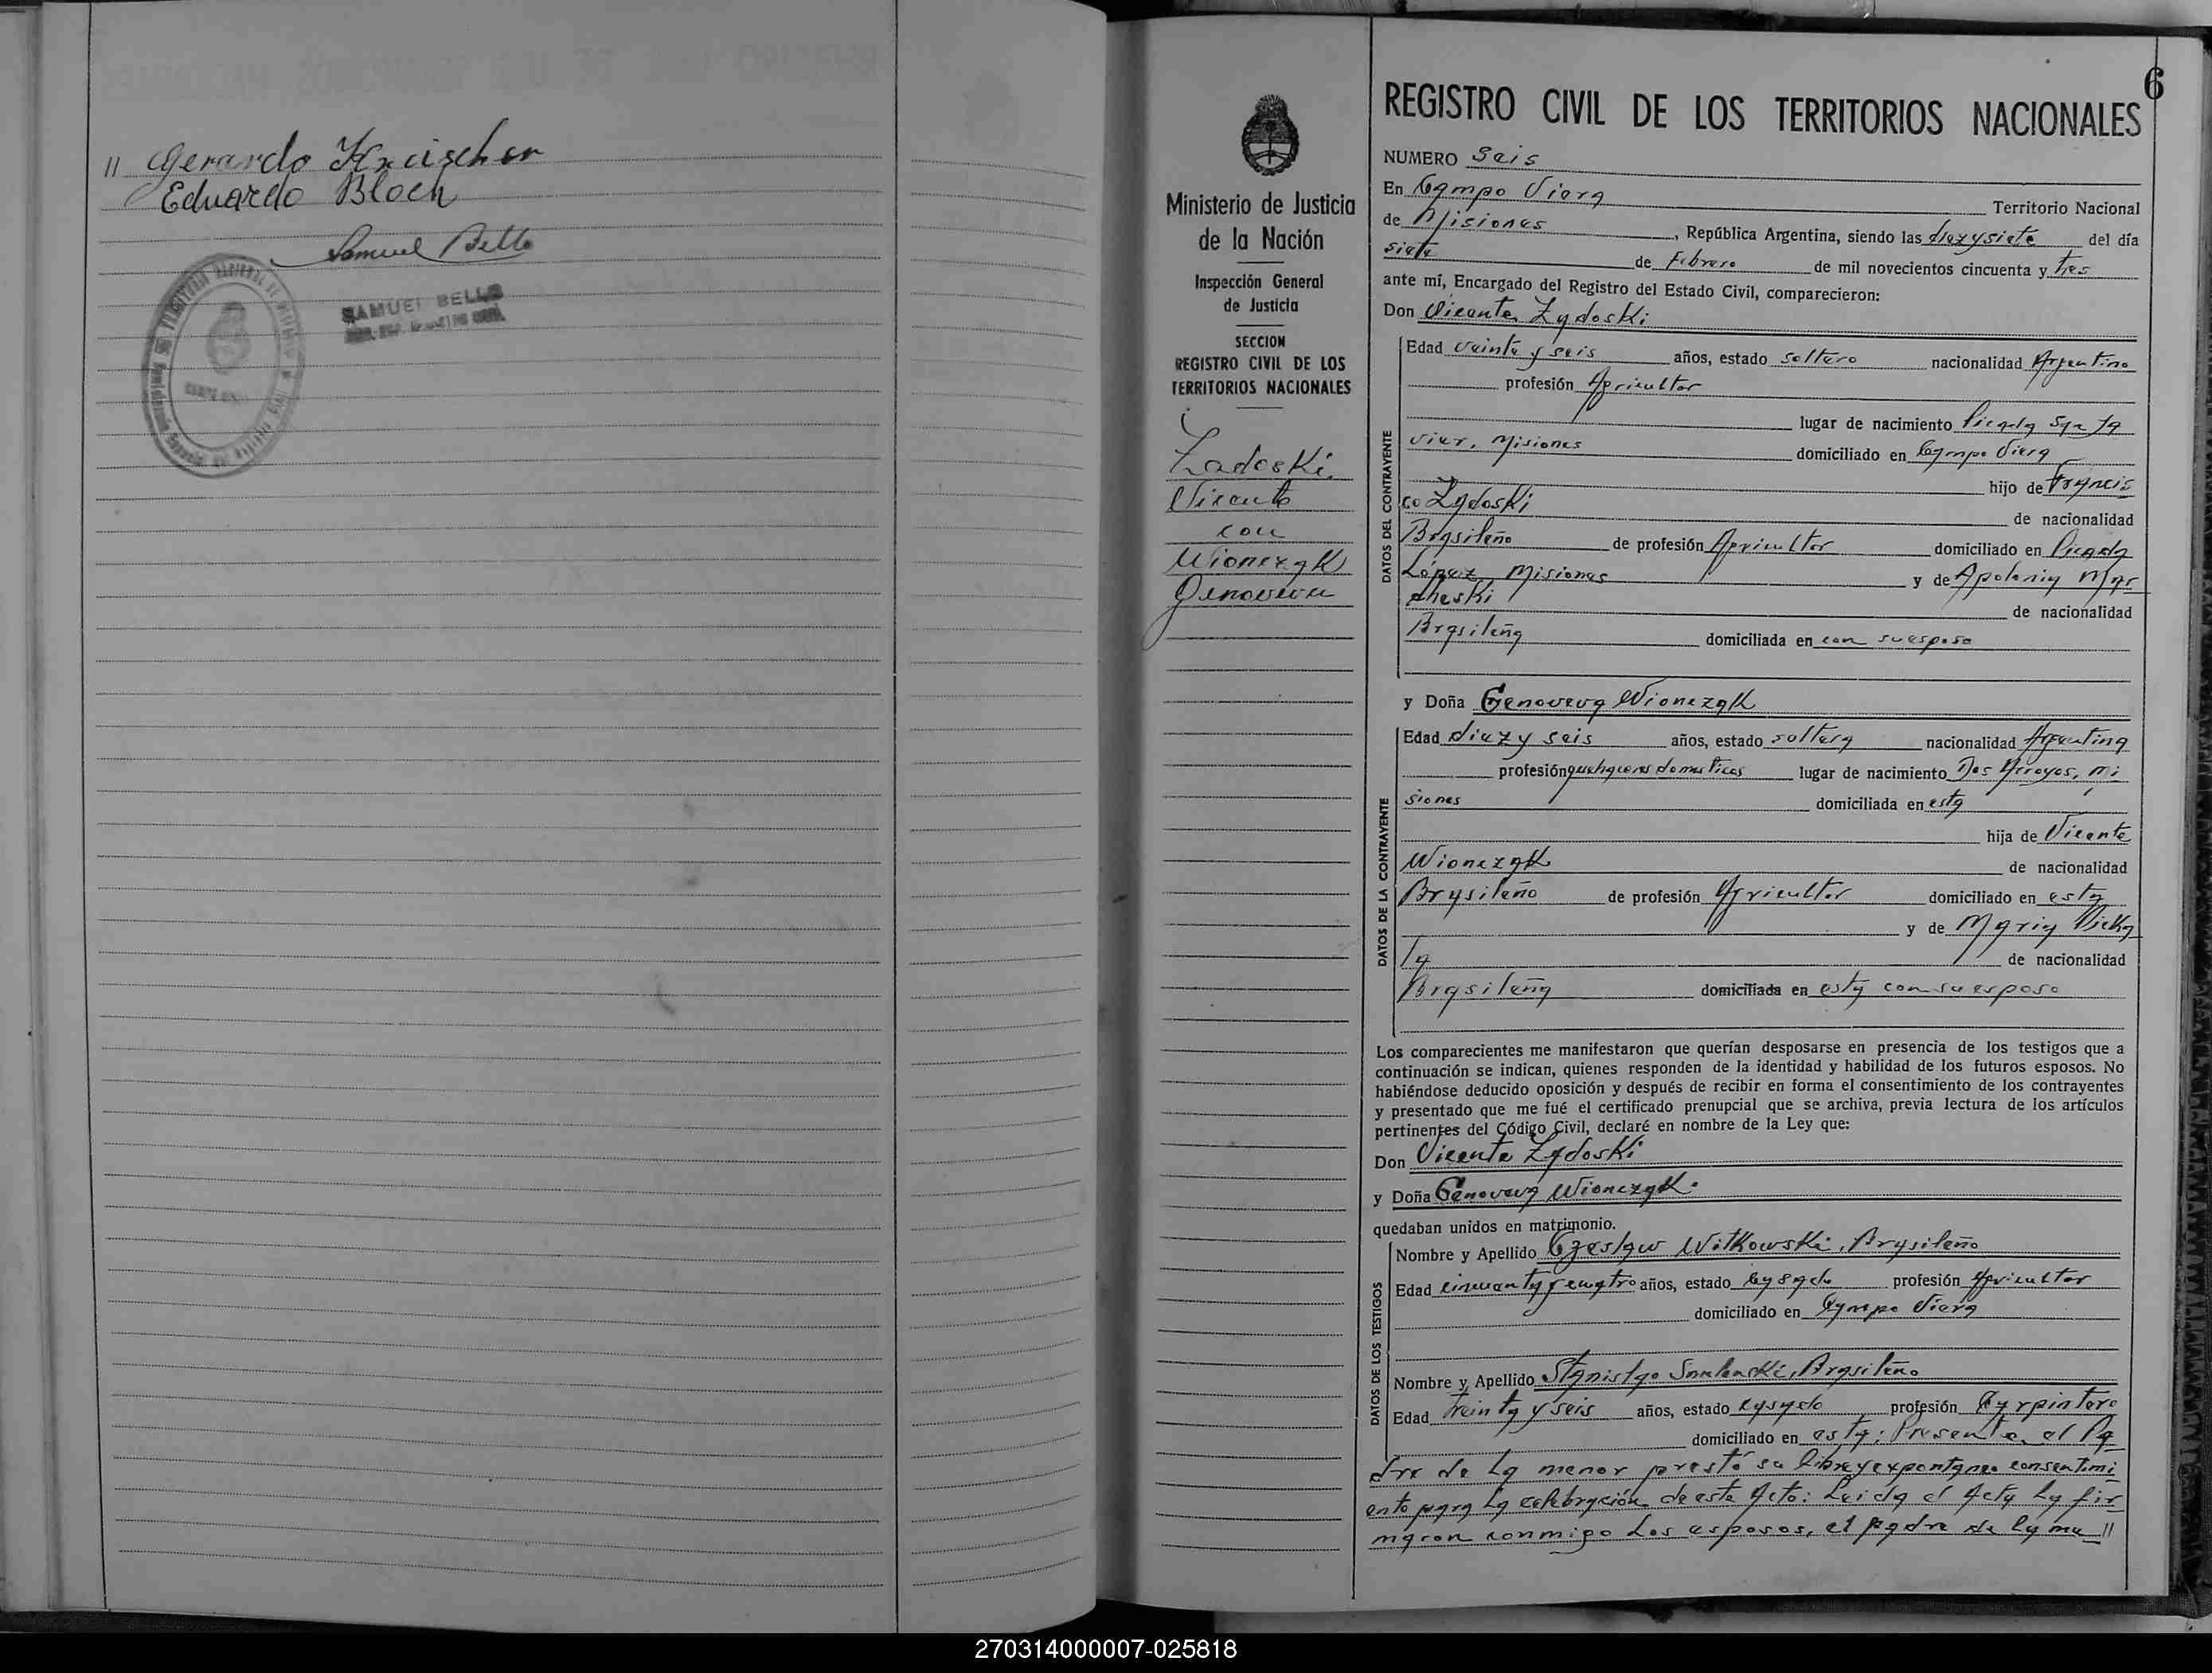 " Gerardo
Eduardo Bloch
Samuel Bello
SAMUEL BELLO
6
Ministerio de Justicia
de la Nación
Inspección General
de Justicia
SECCION
REGISTRO CIVIL DE LOS
TERRITORIOS NACIONALES
Zadoski
Vicente
con
Wionczak
Genoveva
REGISTRO CIVIL DE LOS TERRITORIOS NACIONALES
NUMERO Seis
En Campo Viera Territorio Nacional
de Misiones, República Argentina, siendo las diezysiete del día
siete de Febrero de mil novecientos cincuenta y tres
ante mí, Encargado del Registro del Estado Civil, comparecieron:
Don Vicente Zadoski
DATOS DEL CONTRAYENTE
Edad veinte y seis años, estado soltero nacionalidad Argentino
profesión Agricultor
lugar de nacimiento Picada
Misiones domiciliado en Campo Viera
hijo de Francis
co Zadoski de nacionalidad
Brasileño de profesión Agricultor domiciliado en Picada
López, Misiones y de Apolonia Mar
cheski de nacionalidad
Brasileña domiciliada en con su esposo
y Doña Genoveva Wionczak
DATOS DE LA CONTRAYENTE
Edad diez y seis años, estado soltera nacionalidad Argentina
profesión quehaceres domesticos lugar de nacimiento Dos Arroyos, Mi
siones domiciliada en esta
hija de Vicente
Wionczak de nacionalidad
Brasileño de profesión Agricultor domiciliado en esta
y de Maria
de nacionalidad
Brasileña domiciliada en esta con su esposo
Los comparecientes me manifestaron que querían desposarse en presencia de los testigos que a
continuación se indican, quienes responden de la identidad y habilidad de los futuros esposos. No
habiéndose deducido oposición y después de recibir en forma el consentimiento de los contrayentes
y presentado que me fué el certificado prenupcial que se archiva, previa lectura de los artículos
pertinentes del Código Civil, declaré en nombre de la Ley que:
Don Vicente Zadoski
y Doña Genoveva Wionczak.
quedaban unidos en matrimonio.
DATOS DE LOS TESTIGOS
Nombre y Apellido Czeslaw Witkowski, Brasileño
Edad cincuenta y cuatro años, estado casado profesión Agricultor
domiciliado en Campo Viera
Nombre y Apellido Stanislao Brasileño
Edad treinta y seis años, estado casado profesión Carpintero
domiciliado en esta; Presente el Pa
dre de la menor prestó su libre y expontaneo consentimi
ento para la celebración de este Acto: Leida el Acta la fir
maron conmigo los esposos, el padre de la me "
270314000007-025818